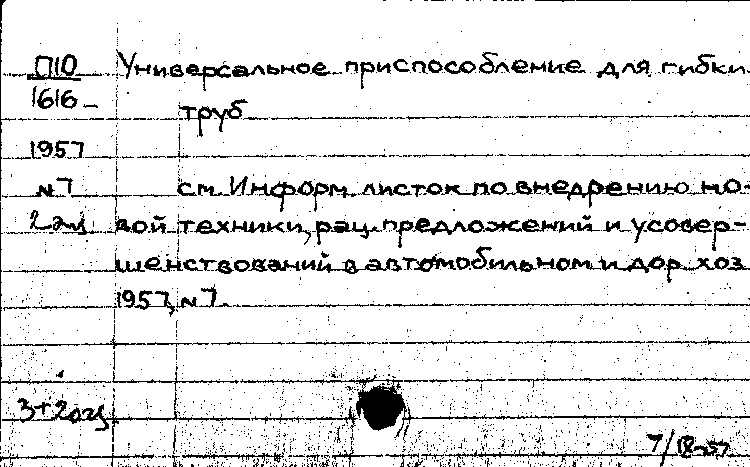 П10 Универсальное приспособление для гибки
1616- труб
1957
№7 см. Информ. листок по внедрению но-
2 экз. вой техники, рац. предложений и усовер-
шенствований в автомобильном и дор. хоз.
1957, №7.
3+2огз.